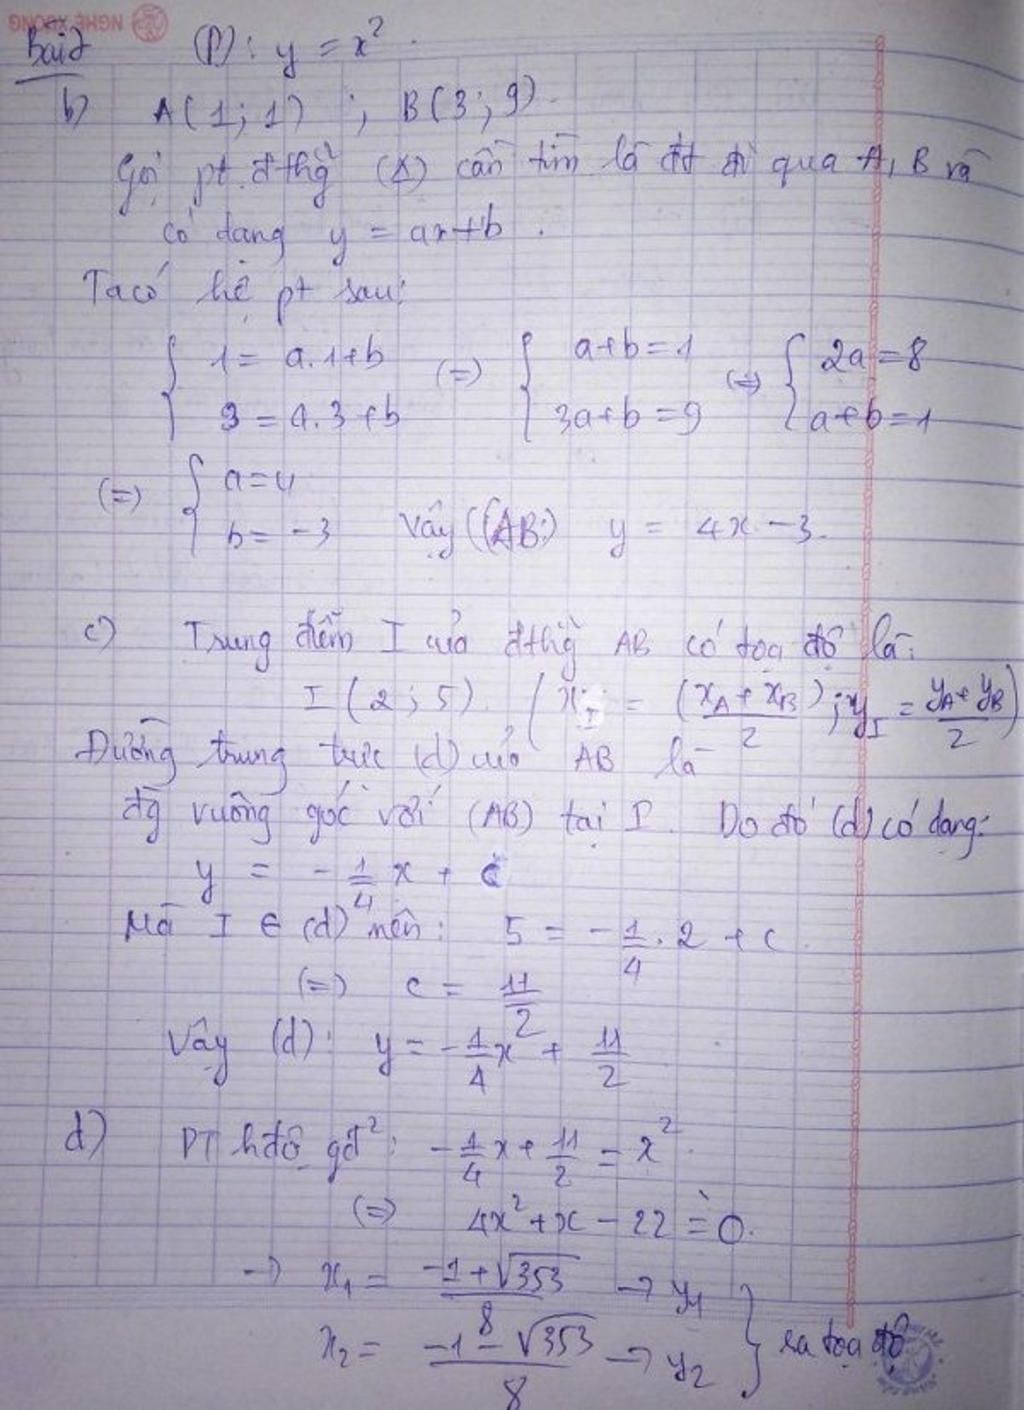 Bài 2 (P): y = x².
b) A(1; 1) ; B(3; 9).
Gọi pt đthg (Δ) cần tìm là đt đi qua A, B và
có dạng y = ax+b.
Ta có hệ pt sau:
{ 1 = a.1+b (=) { a+b=1 (=) { 2a=8
9 = a.3+b 3a+b=9 a+b=1
(=) { a=4
b=-3 Vậy (AB:) y = 4x-3.
c) Trung điểm I của đthg AB có tọa độ là:
I(2; 5). (x_I = (x_A + x_B)/2 ; y_I = (y_A + y_B)/2)
Đường trung trực (d) của AB là
đg vuông góc với (AB) tại I. Do đó (d) có dạng:
y = -1/4 x + c
Mà I ∈ (d) nên: 5 = -1/4 . 2 + c.
(=) c = 11/2
Vậy (d): y = -1/4 x + 11/2
d) PT hđộ gđ²: -1/4 x + 11/2 = x².
(=) 4x²+x-22 = 0.
→ x₁ = (-1+√353)/8 → y₁
x₂ = (-1-√353)/8 → y₂ } ra tọa độ